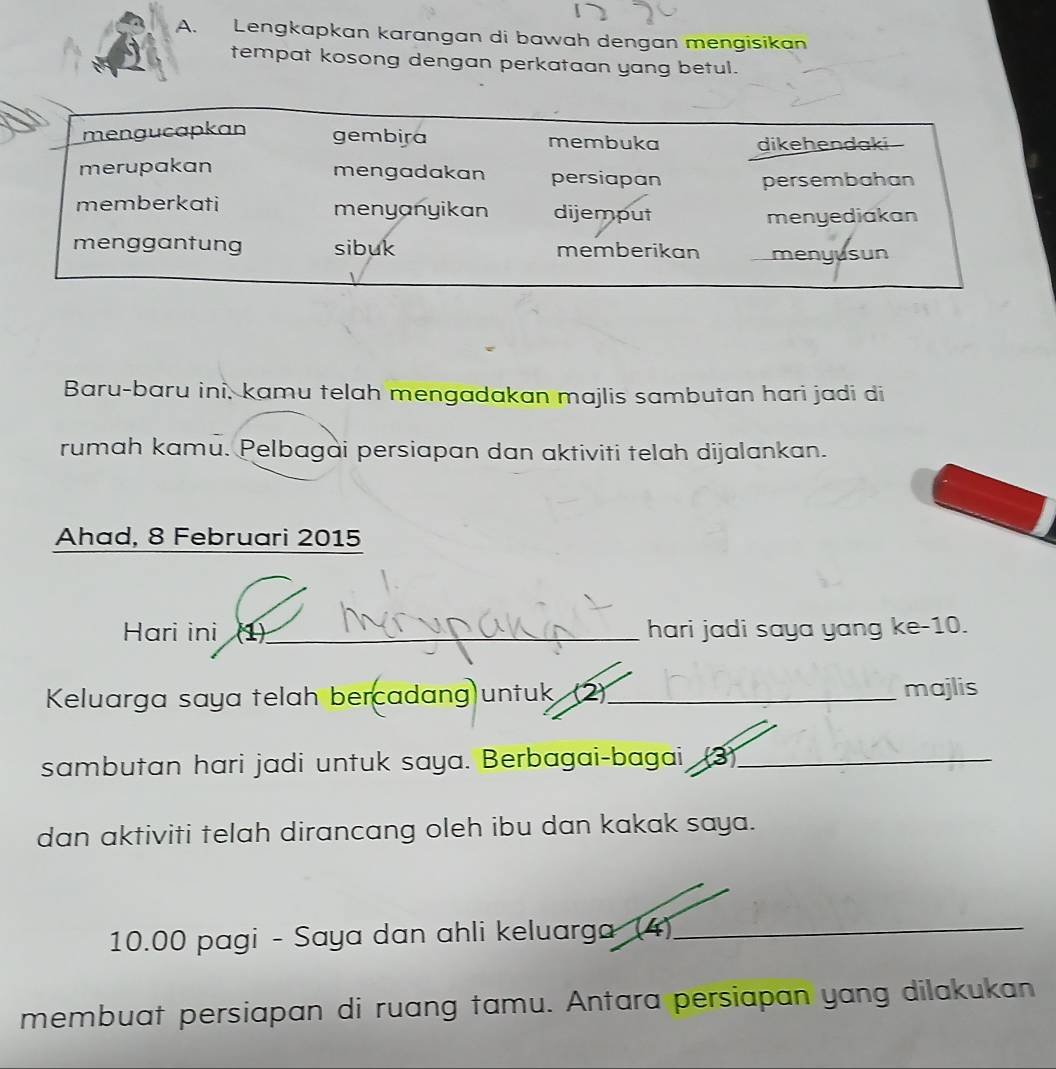 A. Lengkapkan karangan di bawah dengan mengisikan
tempat kosong dengan perkataan yang betul.
mengucapkan gembira membuka dikehendaki
merupakan mengadakan persiapan persembahan
memberkati menyanyikan dijemput menyediakan
menggantung sibuk memberikan menyusun
Baru-baru ini, kamu telah mengadakan majlis sambutan hari jadi di
rumah kamu. Pelbagai persiapan dan aktiviti telah dijalankan.
Ahad, 8 Februari 2015
Hari ini (1) merupakan hari jadi saya yang ke-10.
Keluarga saya telah bercadang untuk (2) majlis
sambutan hari jadi untuk saya. Berbagai-bagai (3)
dan aktiviti telah dirancang oleh ibu dan kakak saya.
10.00 pagi - Saya dan ahli keluarga (4)
membuat persiapan di ruang tamu. Antara persiapan yang dilakukan